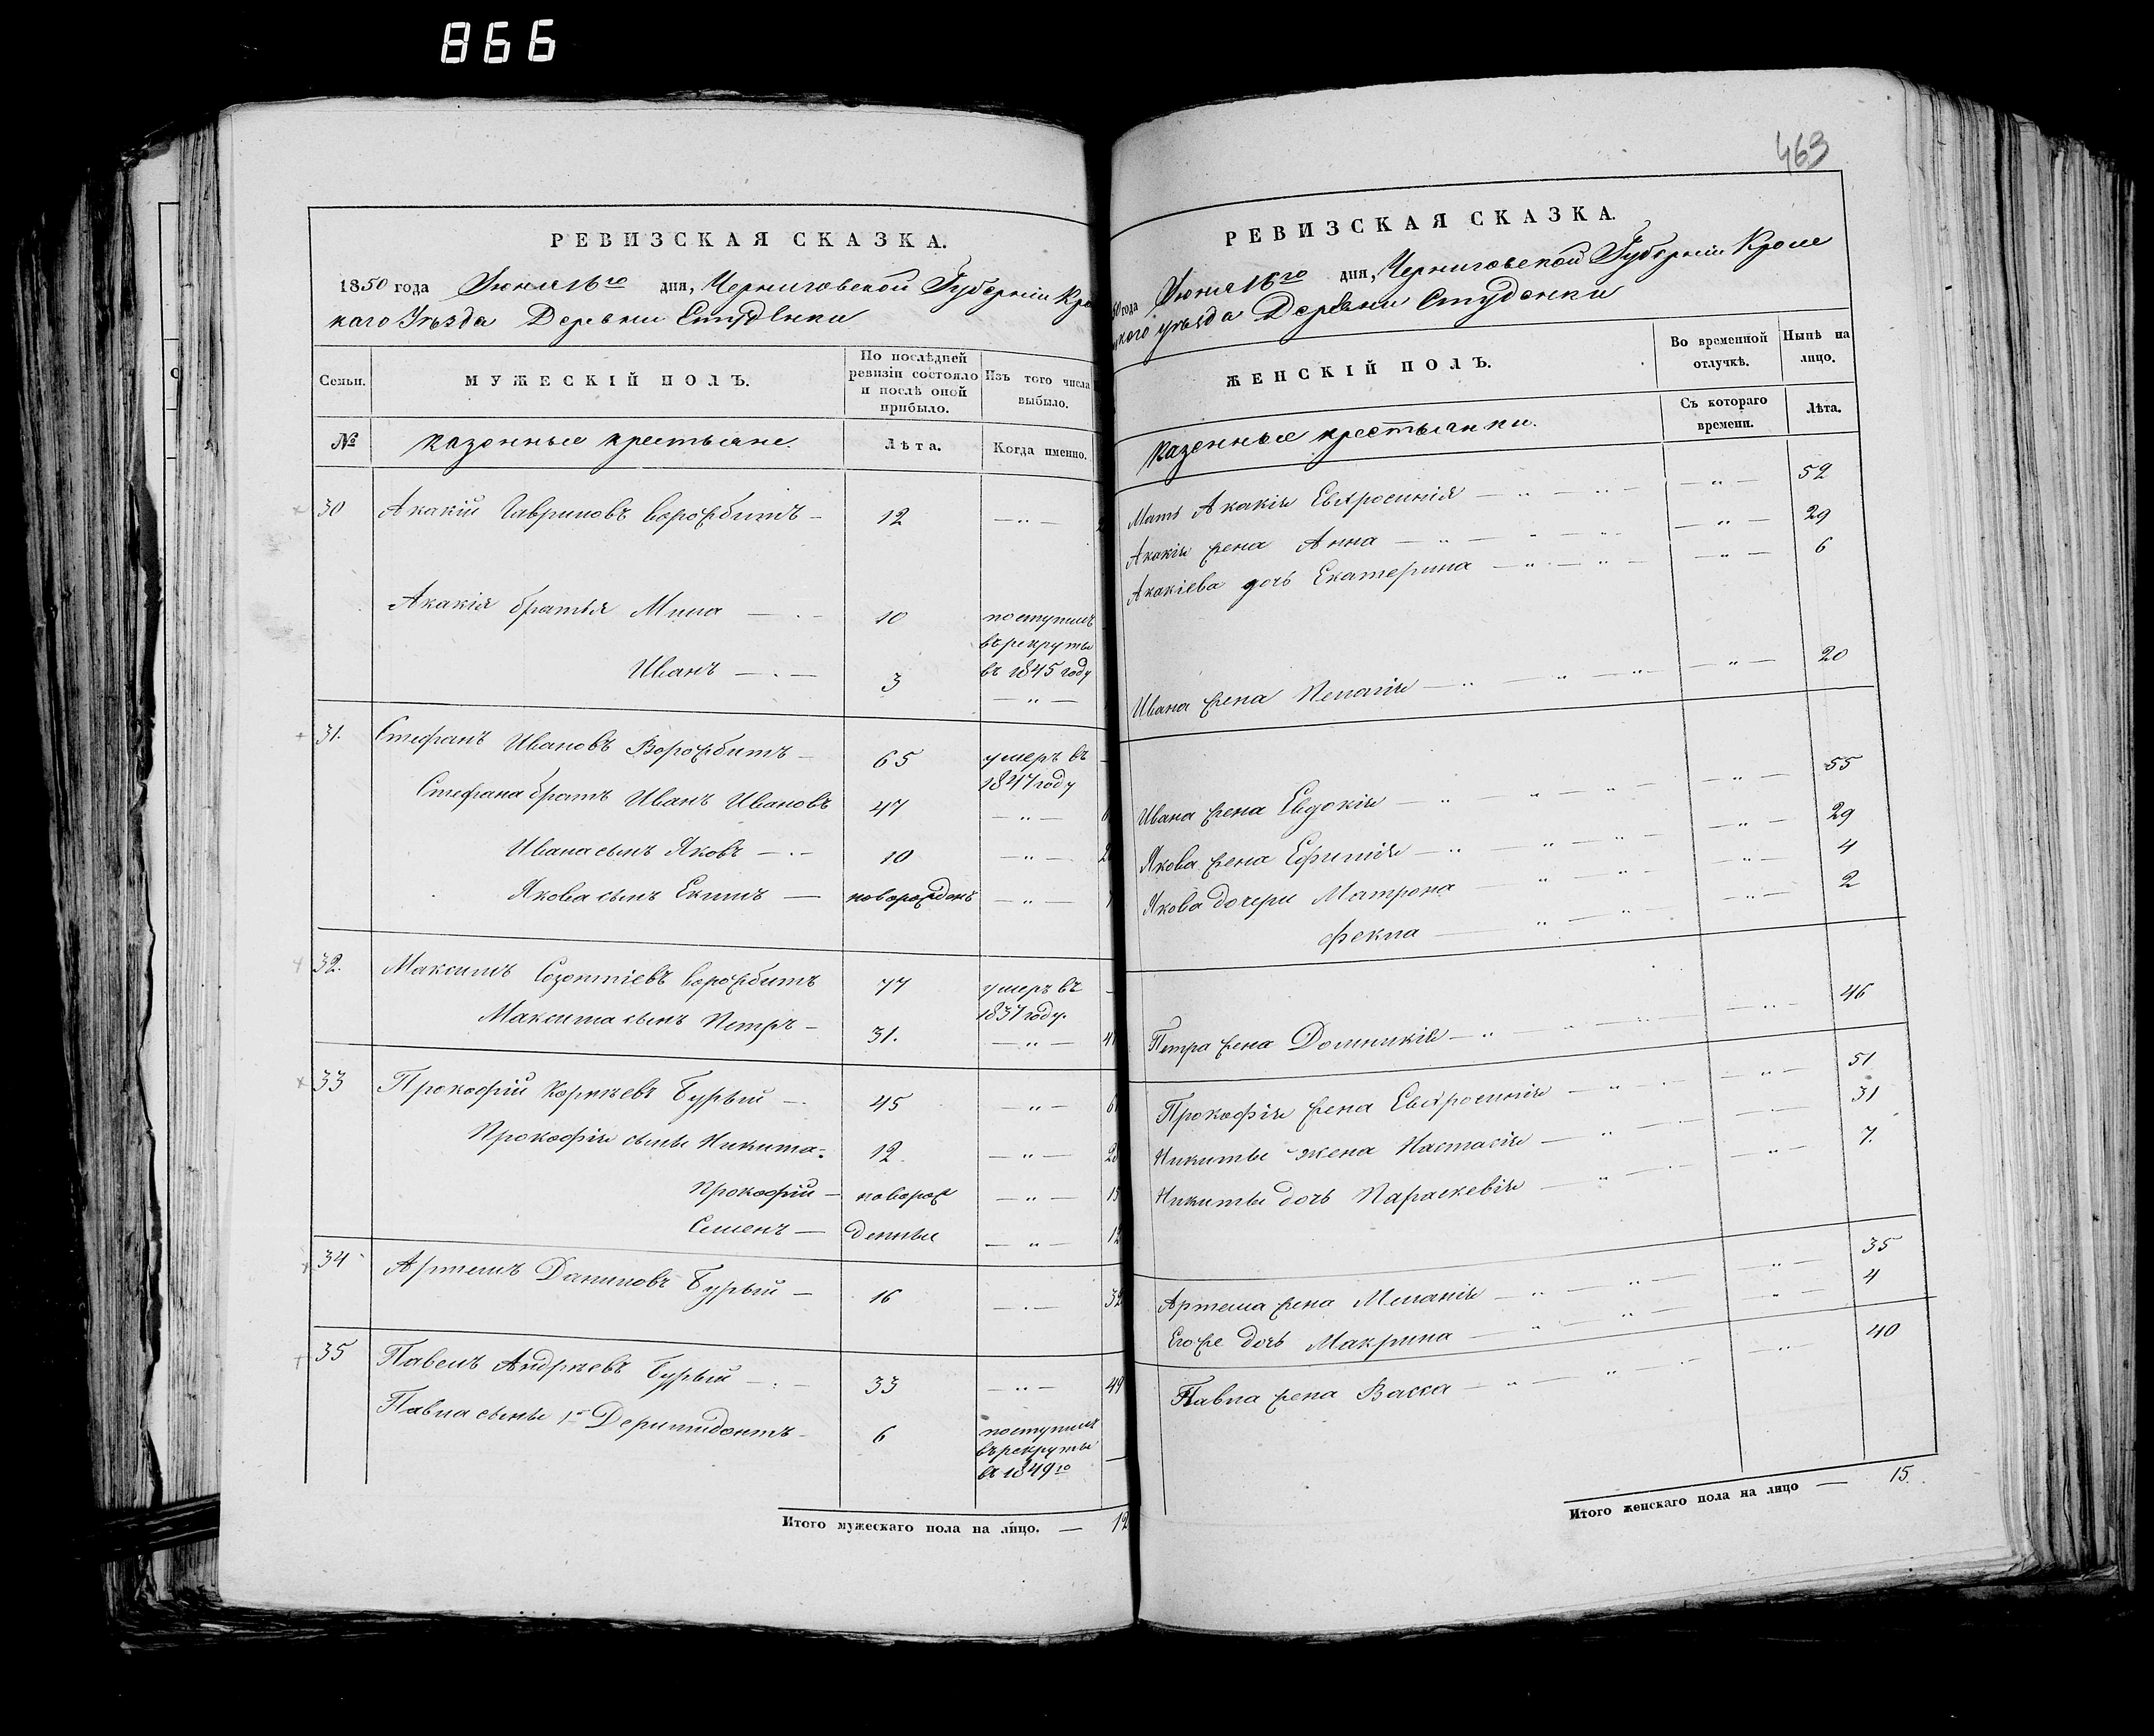 866
РЕВИЗСКАЯ СКАЗКА.
1850 года Июня 16го дня, Черниговской Губерніи Кро
каго Уѣзда Деревни Студенки
Семьи.
МУЖЕСКІЙ ПОЛЪ.
По послѣдней ревизіи состояло и послѣ оной прибыло.
Изъ того числа выбыло.
№
Казенные крестьяне.
Лѣта.
Когда именно.
30 Акакій Гавриловъ Ворожбитъ — 12 — „ —
Акакія братья Мина — 10 поступилъ
въ рекруты
въ 1845 году
Иванъ — 3 — „ —
31. Стефанъ Ивановъ Ворожбитъ — 65 умеръ въ
1847 году
Стефана братъ Иванъ Ивановъ 47 — „ —
Ивана сынъ Яковъ — 10 — „ —
Якова сынъ Екимъ — новорожденъ — „ —
32. Максимъ Созонтіевъ Ворожбитъ 77 умеръ въ
1837 году.
Максима сынъ Петръ — 31. — „ —
33 Прокофій Корнѣевъ Бурый — 45 — „ —
Прокофія сыны Никита 12 — „ —
Прокофій — новорож — „ —
Семенъ — денные — „ —
34 Артемъ Даниловъ Бурый — 16 — „ — 32
35 Павелъ Андреевъ Бурый — 33 — „ — 49
Павла сыны 1й — 6 поступилъ
въ рекруты
въ 1849го
Итого мужескаго пола на лицо. — 12
463
РЕВИЗСКАЯ СКАЗКА.
50 года Июня 16го дня, Черниговской Губерніи Крole
каго уѣзда Деревни Студенки
ЖЕНСКІЙ ПОЛЪ.
Во временной отлучкѣ.
Нынѣ на лицо.
Казенные крестьянки.
Съ котораго времени.
Лѣта.
Мать Акакія Евфросинія — „ — 52
Акакія жена Анна — „ — 29
Акакіева дочь Екатерина — „ — 6
Ивана жена Пелагія — „ — 20
Ивана жена Евдокія — „ — 55
Якова жена Ефимія — „ — 29
Якова дочери Матрона — „ — 4
Фекла — „ — 2
Петра жена Домникія — „ — 46
Прокофія жена Евфросинія — „ — 51
Никиты жена Настасія — „ — 31
Никиты дочь Параскевія — „ — 7.
Артема жена Меланія — „ — 35
Его же дочь Макрина — „ — 4
Павла жена Васса — „ — 40
Итого женскаго пола на лицо — 15.